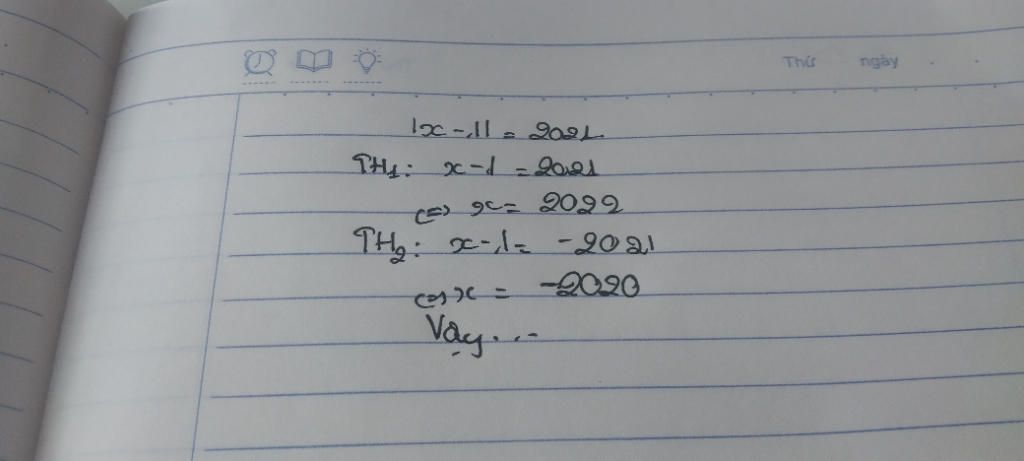 Thứ ngày
|x-1| = 2021
TH1: x-1 = 2021
<=> x = 2022
TH2: x-1 = -2021
<=> x = -2020
Vậy...